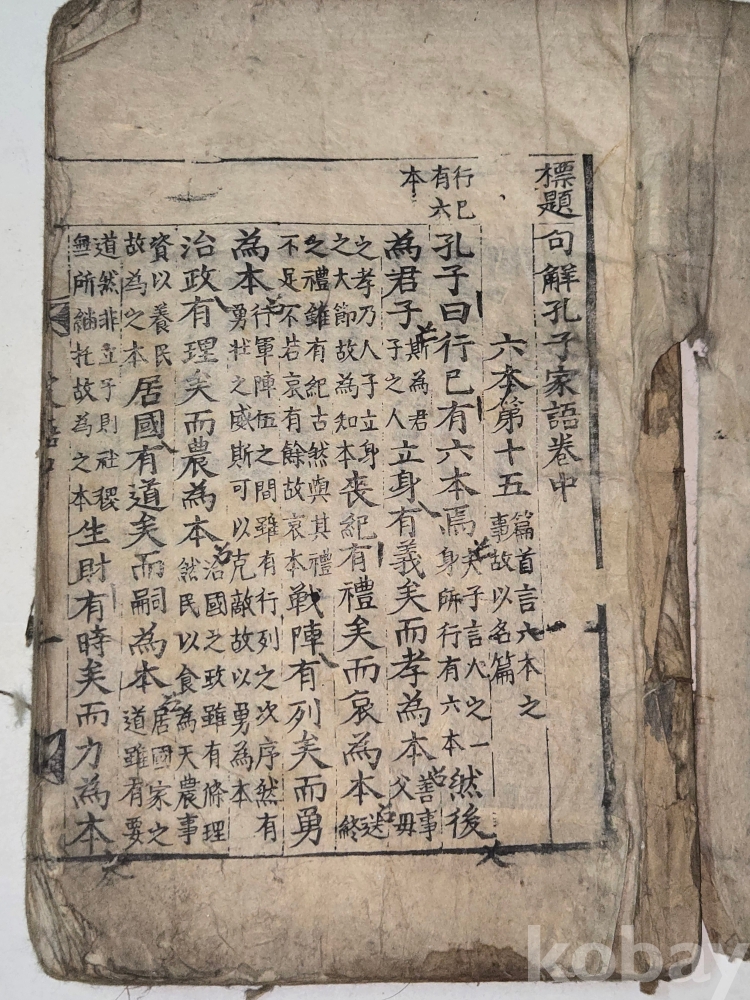 標題句解孔子家語卷中
六本第十五篇首言六本之事故以名篇
行已
有六
本
孔子曰行已有六本焉夫子言人之一身所行有六本然後
為君子斯為君子之人立身有義矣而孝為本善事父母
之孝乃人子立身之大節故為知本喪紀有禮矣而哀為本送終
之禮雖有紀古然與其禮不足不若哀有餘故哀本戰陣有列矣而勇
為本行軍陣伍之間雖有行列之次序然有勇壯之威斯可以克敵故以勇為本
治政有理矣而農為本治國之政雖有條理然民以食為天農事
資以養民故為之本居國有道矣而嗣為本居國家之道雖有要
道然非立子則社稷無所托故為之本生財有時矣而力為本
kobay